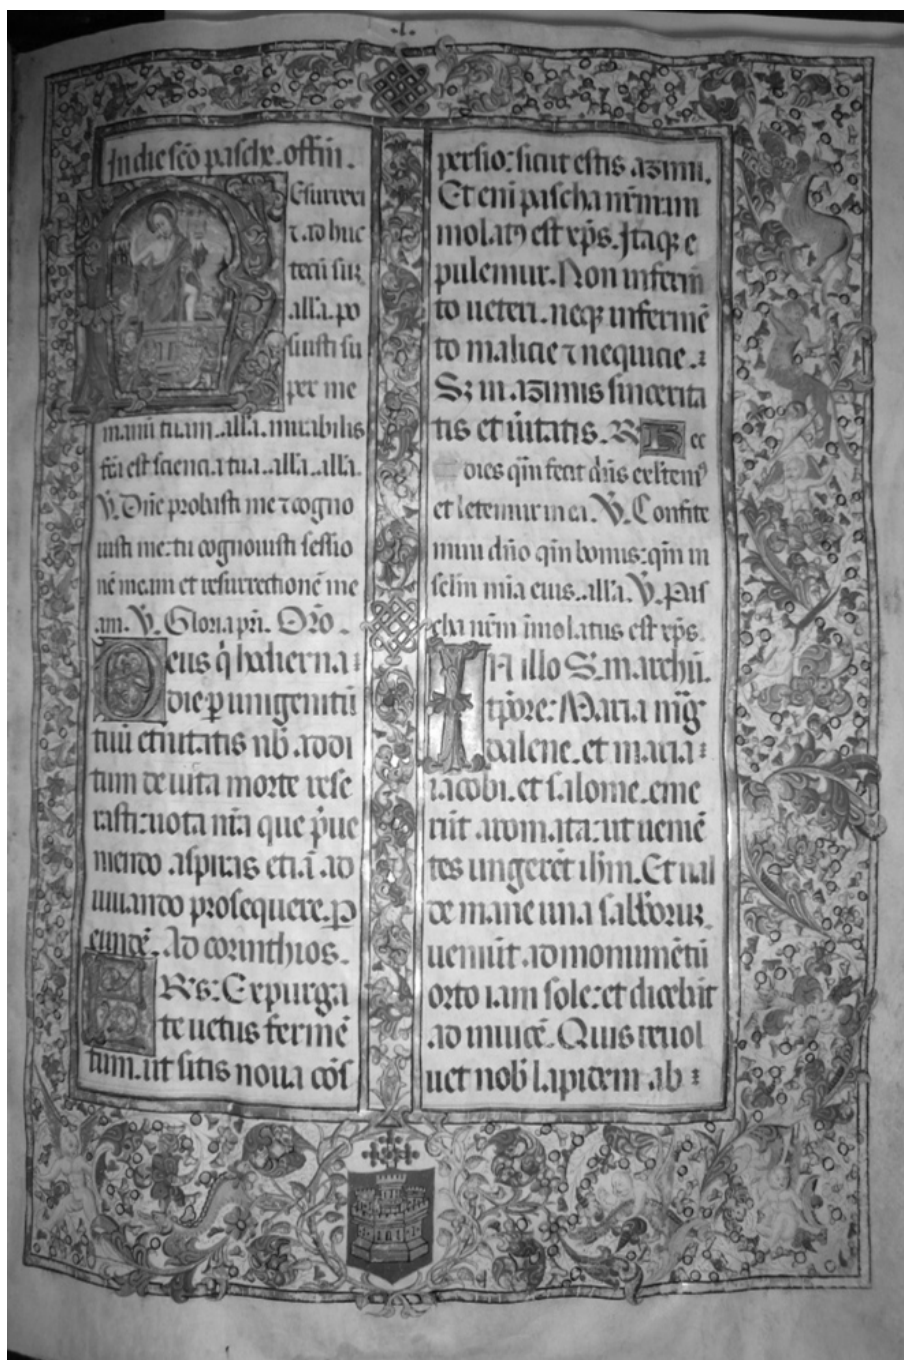 .I.
In die scō pasche. offm̄.
Resurrexi
⁊ adhuc
tecū suꝫ
all'a. po
suisti su
per me
manū tuam. all'a. mirabilis
fc̄a est sciencia tua. all'a. all'a.
℣. Dn̄e probasti me ⁊ cogno
uisti me: tu cognouisti sessio
nē meam et resurrectionē me
am. ℣. Gloria pr̄i. Or̄o.
Deus q̄ hodierna:
die ꝑ unigenitū
tuū et̄nitatis nb̄ adi
tum deuicta morte rese
rasti: uota nr̄a que p̄ue
niendo aspiras eti.ā ad
iuuando prosequere. P
eundē. Ad corinthios.
FRs: Expurga
te uetus fermē
tum. ut sitis noua cōs
persio: sicut estis azimi.
Et eni pascha nr̄m im
molatꝰ est xp̄s. Itaqꝫ e
pulemur. Non in ferm̄
to ueteri. neqꝫ in fermē
to malicie ⁊ nequicie.:
Sꝫ in azimis sincerita
tis et ūitatis. ℞ Hec
dies qm̄ fecit dn̄s exl'temꝰ
et letemur in ea. ℣. Confite
mini dn̄o qm̄ bonus: qm̄ in
sclm̄ mīa eius. all'a. ℣. Pas
cha nr̄m īmolatus est xp̄s.
IN illo S. marchū.
tp̄ore: Maria maḡ
dalene. et maria:
iacobi. et salome. eme
rūt aromata: ut ueniē
tes ungerēt ihm̄. Et ual
de mane una sabb'oruꝫ.
ueniūt ad monumētū
orto iam sole: et dicebāt
ad inuicē. Quis reuol
uet nob' lapidem ab: